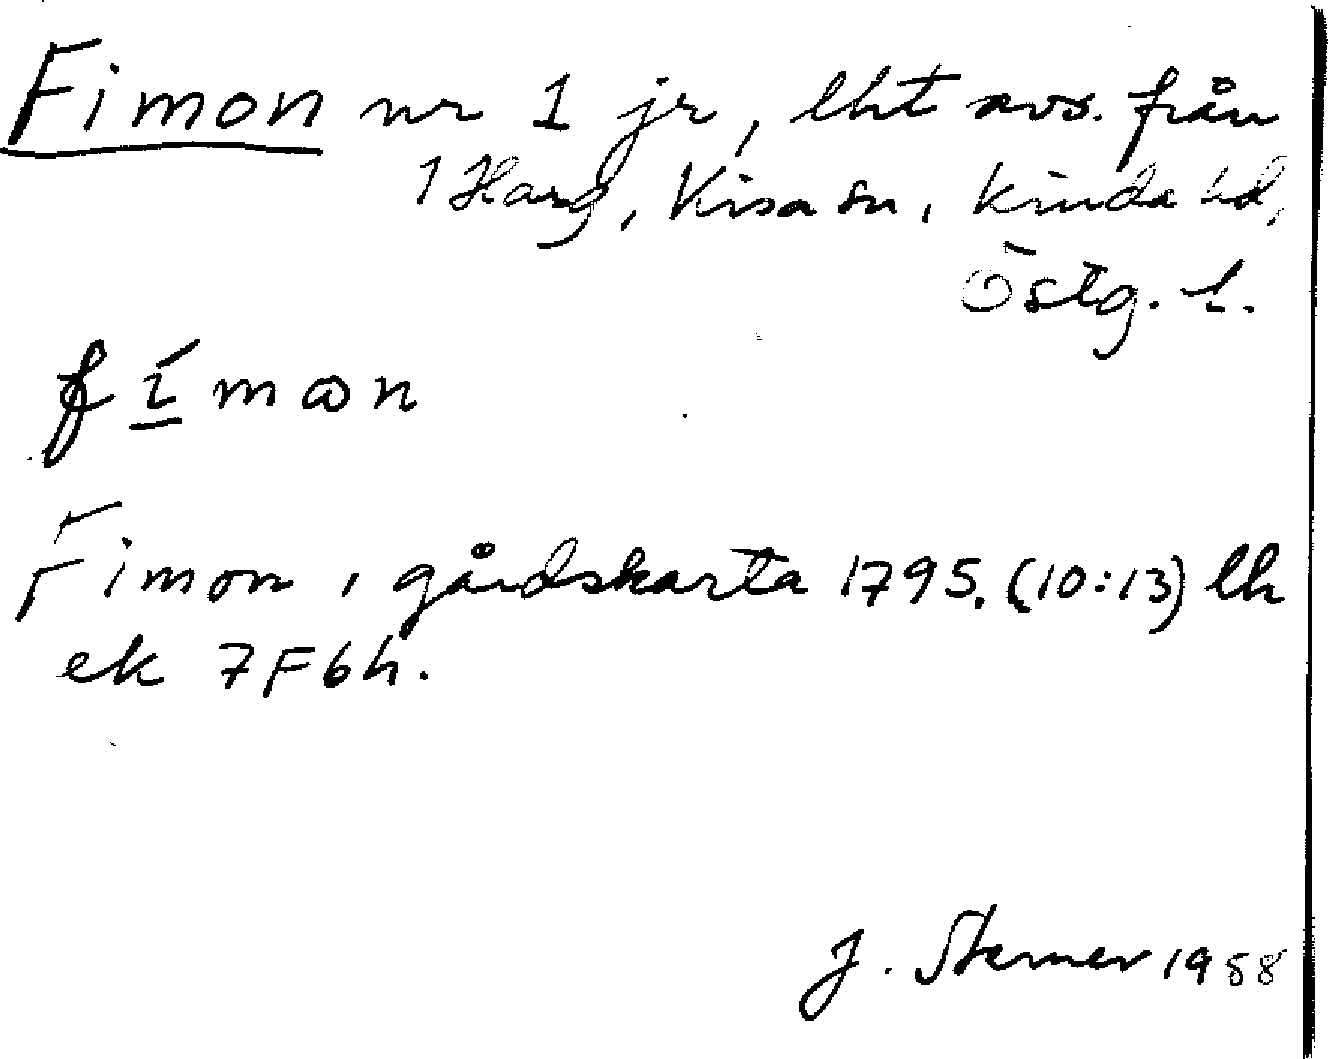 Fimon nr 1 jr, lht avs. från
1 Harg, Kisa sn, Kinda hd,
Östg. l.
fímωn
Fimon, gårdskarta 1795. (10:13) lh
ek 7F6h.
J. Sterner 1988